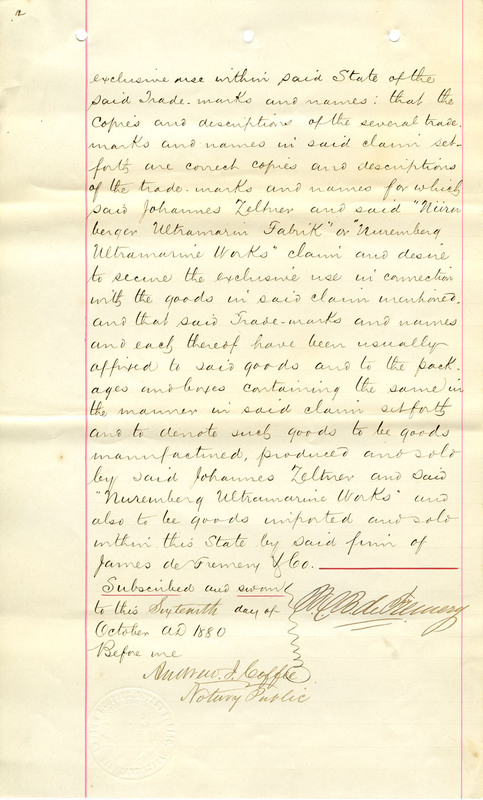 12
exclusive use within said State of the
said Trade-marks and names: that the
copies and descriptions of the several trade-
marks and names in said claim set-
forth are correct copies and descriptions
of the trade-marks and names for which
said Johannes Zeltner and said "Nürn
berger Ultramarin Fabrik" or "Nuremberg
Ultramarine Works" claim and desire
to secure the exclusive use in connection
with the goods in said claim mentioned.
and that said Trade-marks and names
and each thereof have been usually
affixed to said goods and to the pack-
ages and boxes containing the same in
the manner in said claim set forth
and to denote such goods to be goods
manufactured, produced and sold
by said Johannes Zeltner and said
"Nuremberg Ultramarine Works" and
also to be goods imported and sold
within this State by said firm of
James de Fremery & Co.
Subscribed and sworn
to this Sixteenth day of
October AD 1880
Before me
de Fremery
Andrew J. Coffee
Notary Public